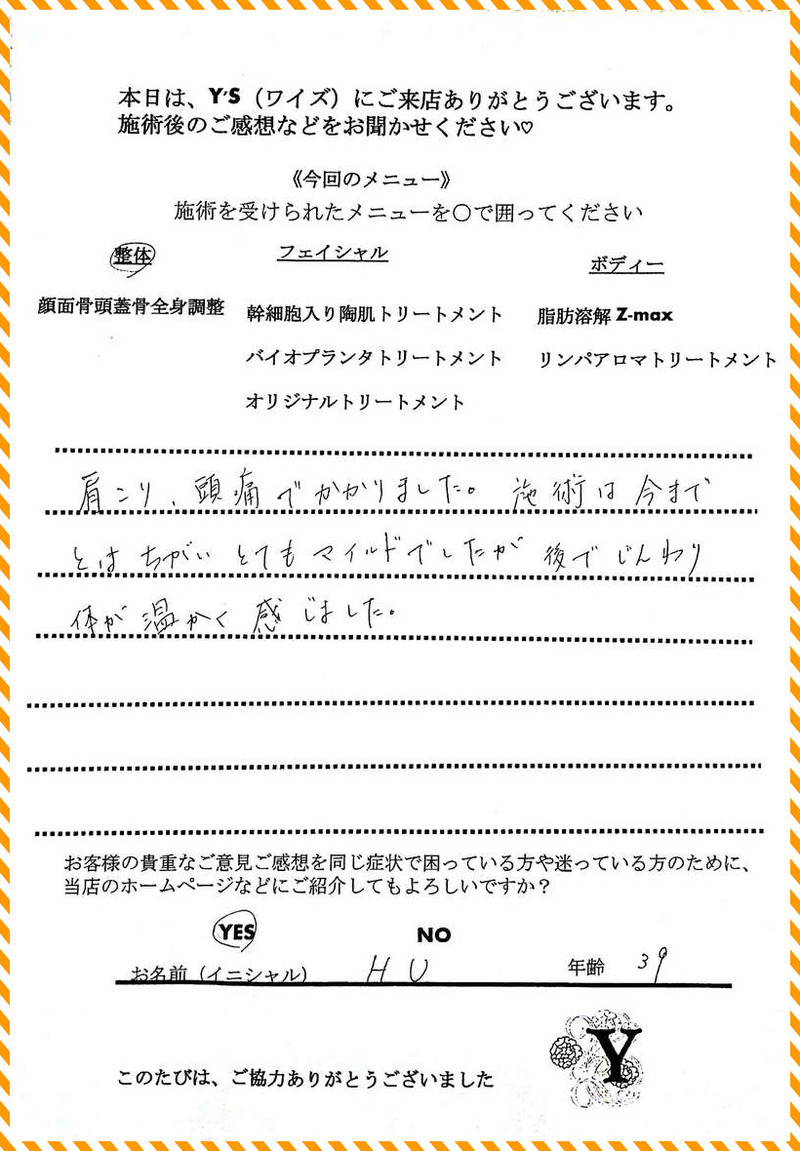 本日は、Y'S（ワイズ）にご来店ありがとうございます。
施術後のご感想などをお聞かせください♡
《今回のメニュー》
施術を受けられたメニューを〇で囲ってください
整体
フェイシャル
ボディー
顔面骨頭蓋骨全身調整
幹細胞入り陶肌トリートメント
脂肪溶解 Z-max
バイオプランタトリートメント
リンパアロマトリートメント
オリジナルトリートメント
肩こり、頭痛でかかりました。施術は今まで
とはちがい とてもマイルドでしたが 後でじんわり
体が温かく感じました。
お客様の貴重なご意見ご感想を同じ症状で困っている方や迷っている方のために、
当店のホームページなどにご紹介してもよろしいですか？
YES NO
お名前（イニシャル） H U 年齢 39
Y
このたびは、ご協力ありがとうございました